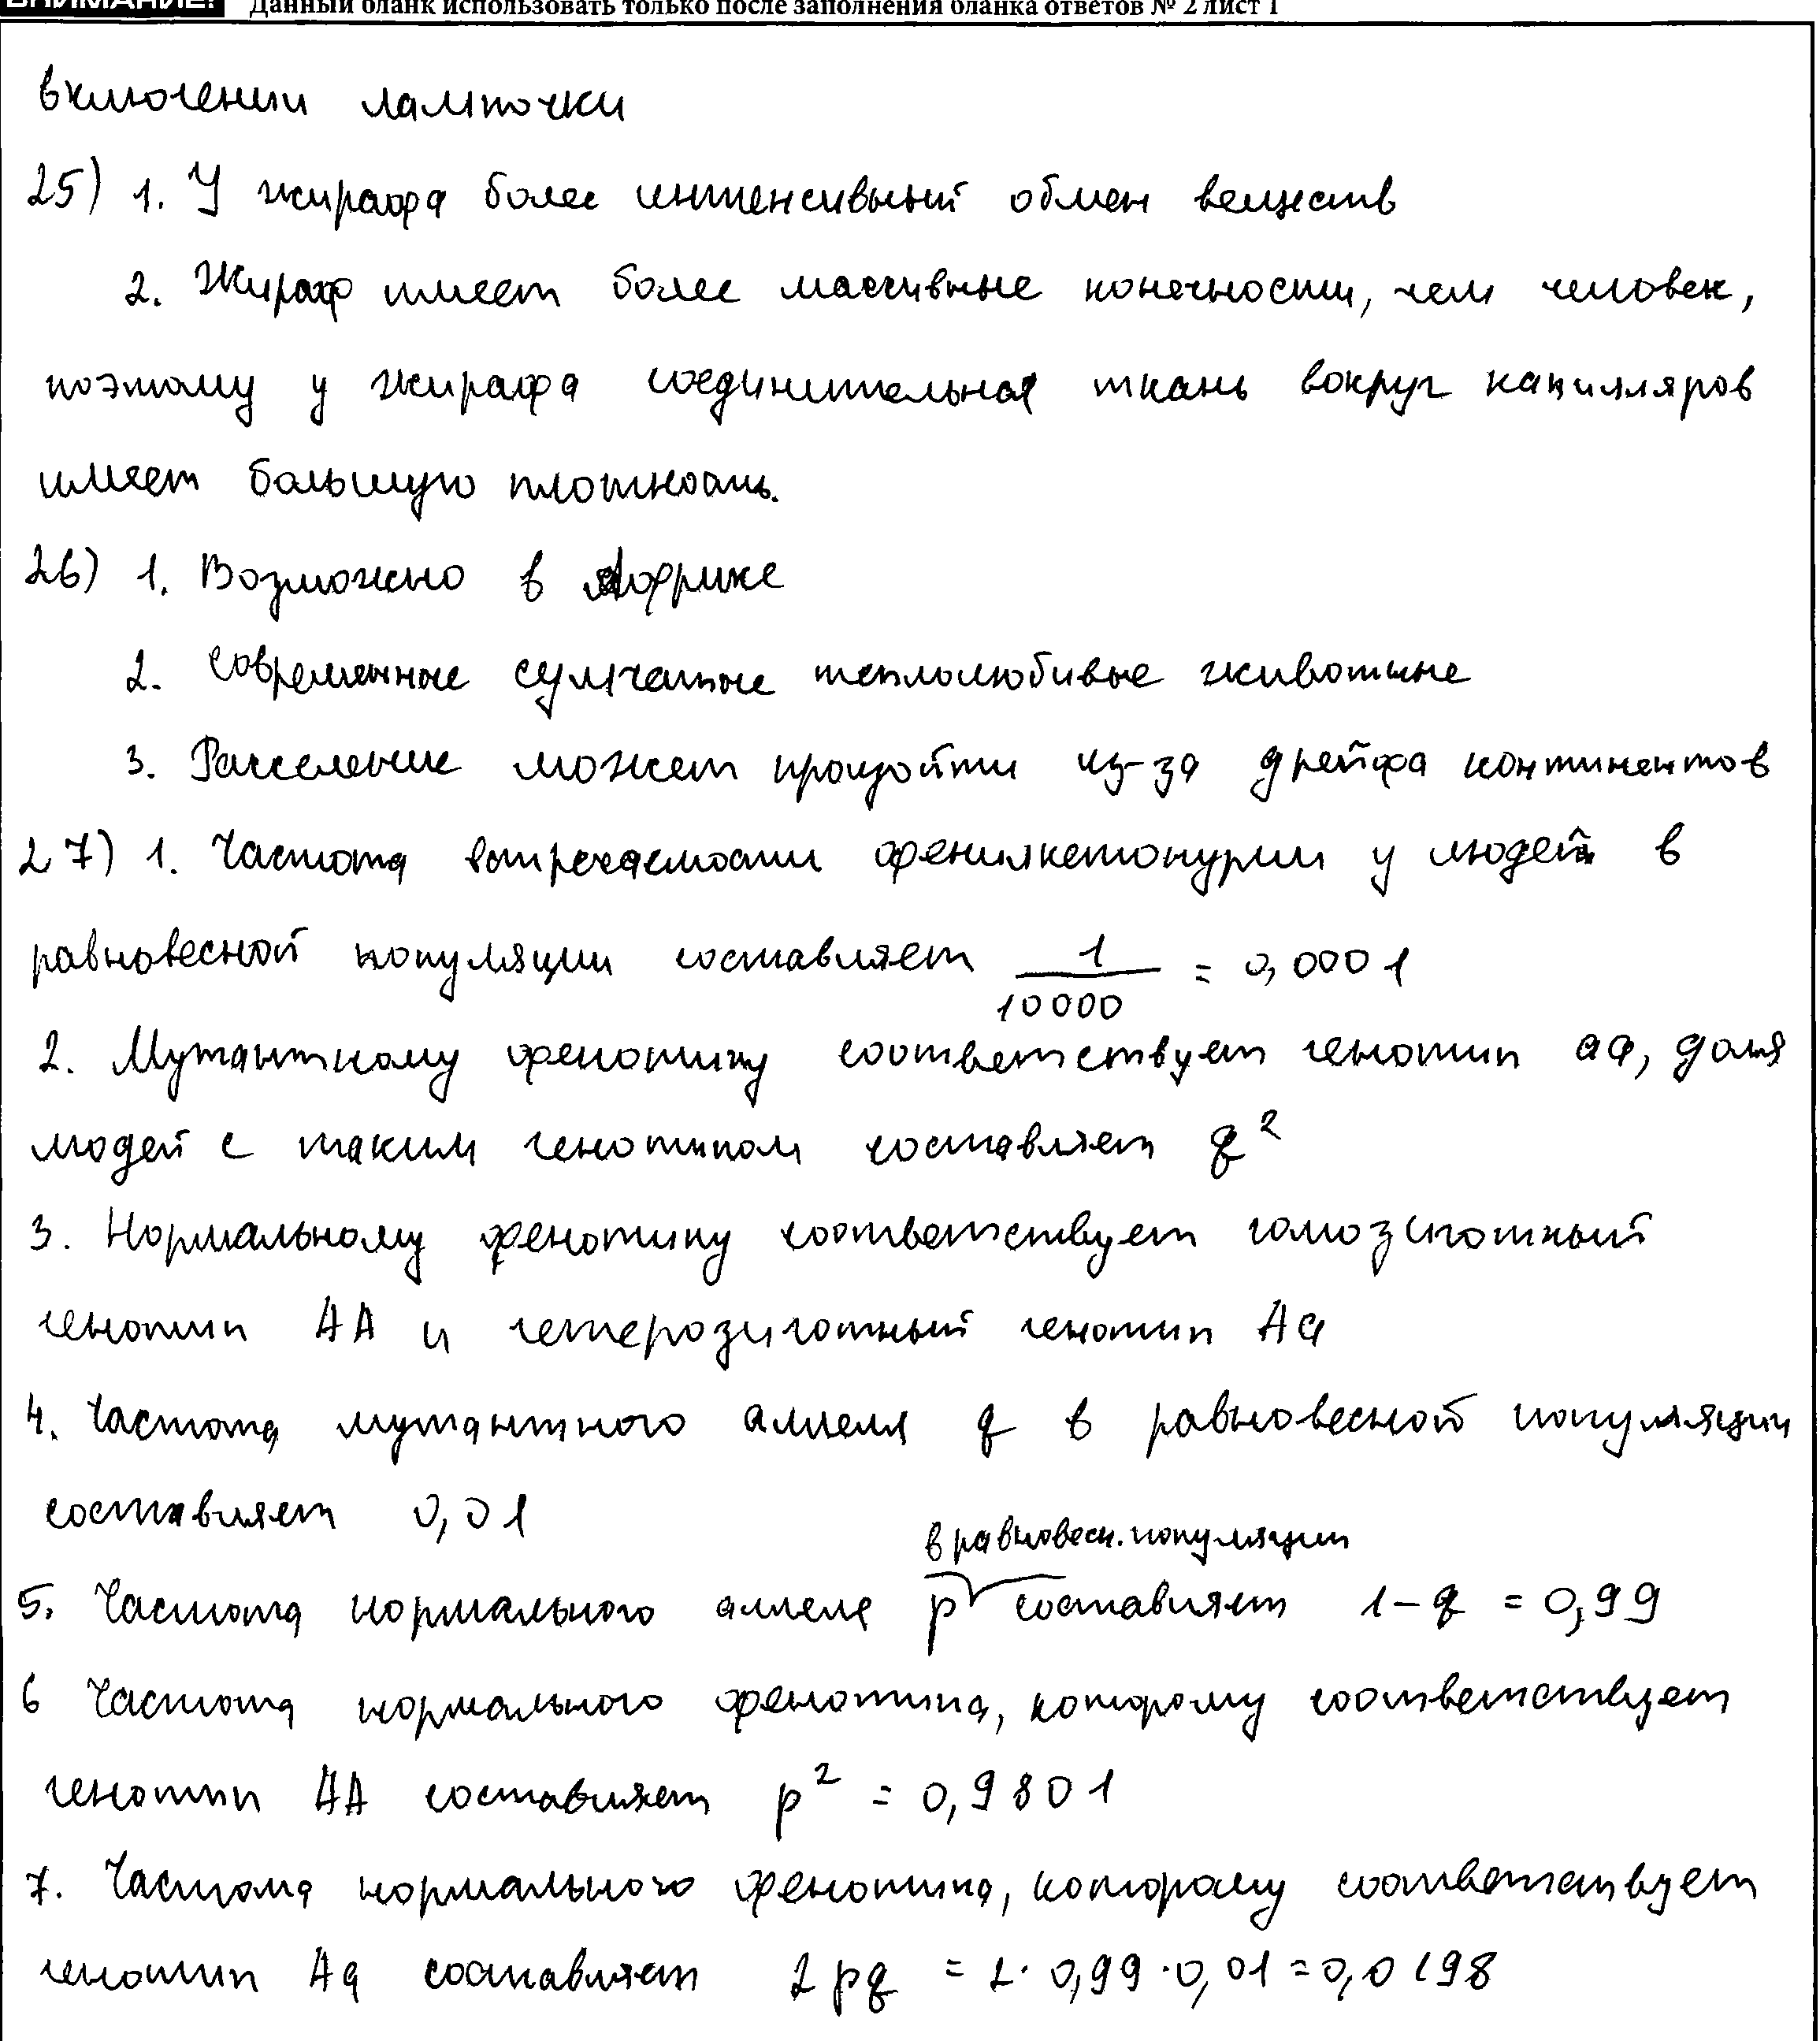 ВНИМАНИЕ! Данный бланк использовать только после заполнения бланка ответов № 2 лист 1
включении лампочки
25) 1. У жирафа более интенсивный обмен веществ
2. Жираф имеет более массивные конечности, чем человек,
поэтому у жирафа соединительная ткань вокруг капилляров
имеет большую плотность.
26) 1. Возможно в Африке
2. Современные сумчатые теплолюбивые животные
3. Расселение может произойти из-за дрейфа континентов
27) 1. Частота встречаемости фенилкетонурии у людей в
равновесной популяции составляет 1/10000 = 0,0001
2. Мутантному фенотипу соответствует генотип aa, доля
людей с таким генотипом составляет q²
3. Нормальному фенотипу соответствует гомозиготный
генотип AA и гетерозиготный генотип Aa
4. Частота мутантного аллеля q в равновесной популяции
составляет 0,01
в равновесн. популяции
5. Частота нормального аллеля p составляет 1-q = 0,99
6 Частота нормального фенотипа, которому соответствует
генотип AA составляет p² = 0,9801
7. Частота нормального фенотипа, которому соответствует
генотип Aa составляет 2pq = 2·0,99·0,01=0,0198